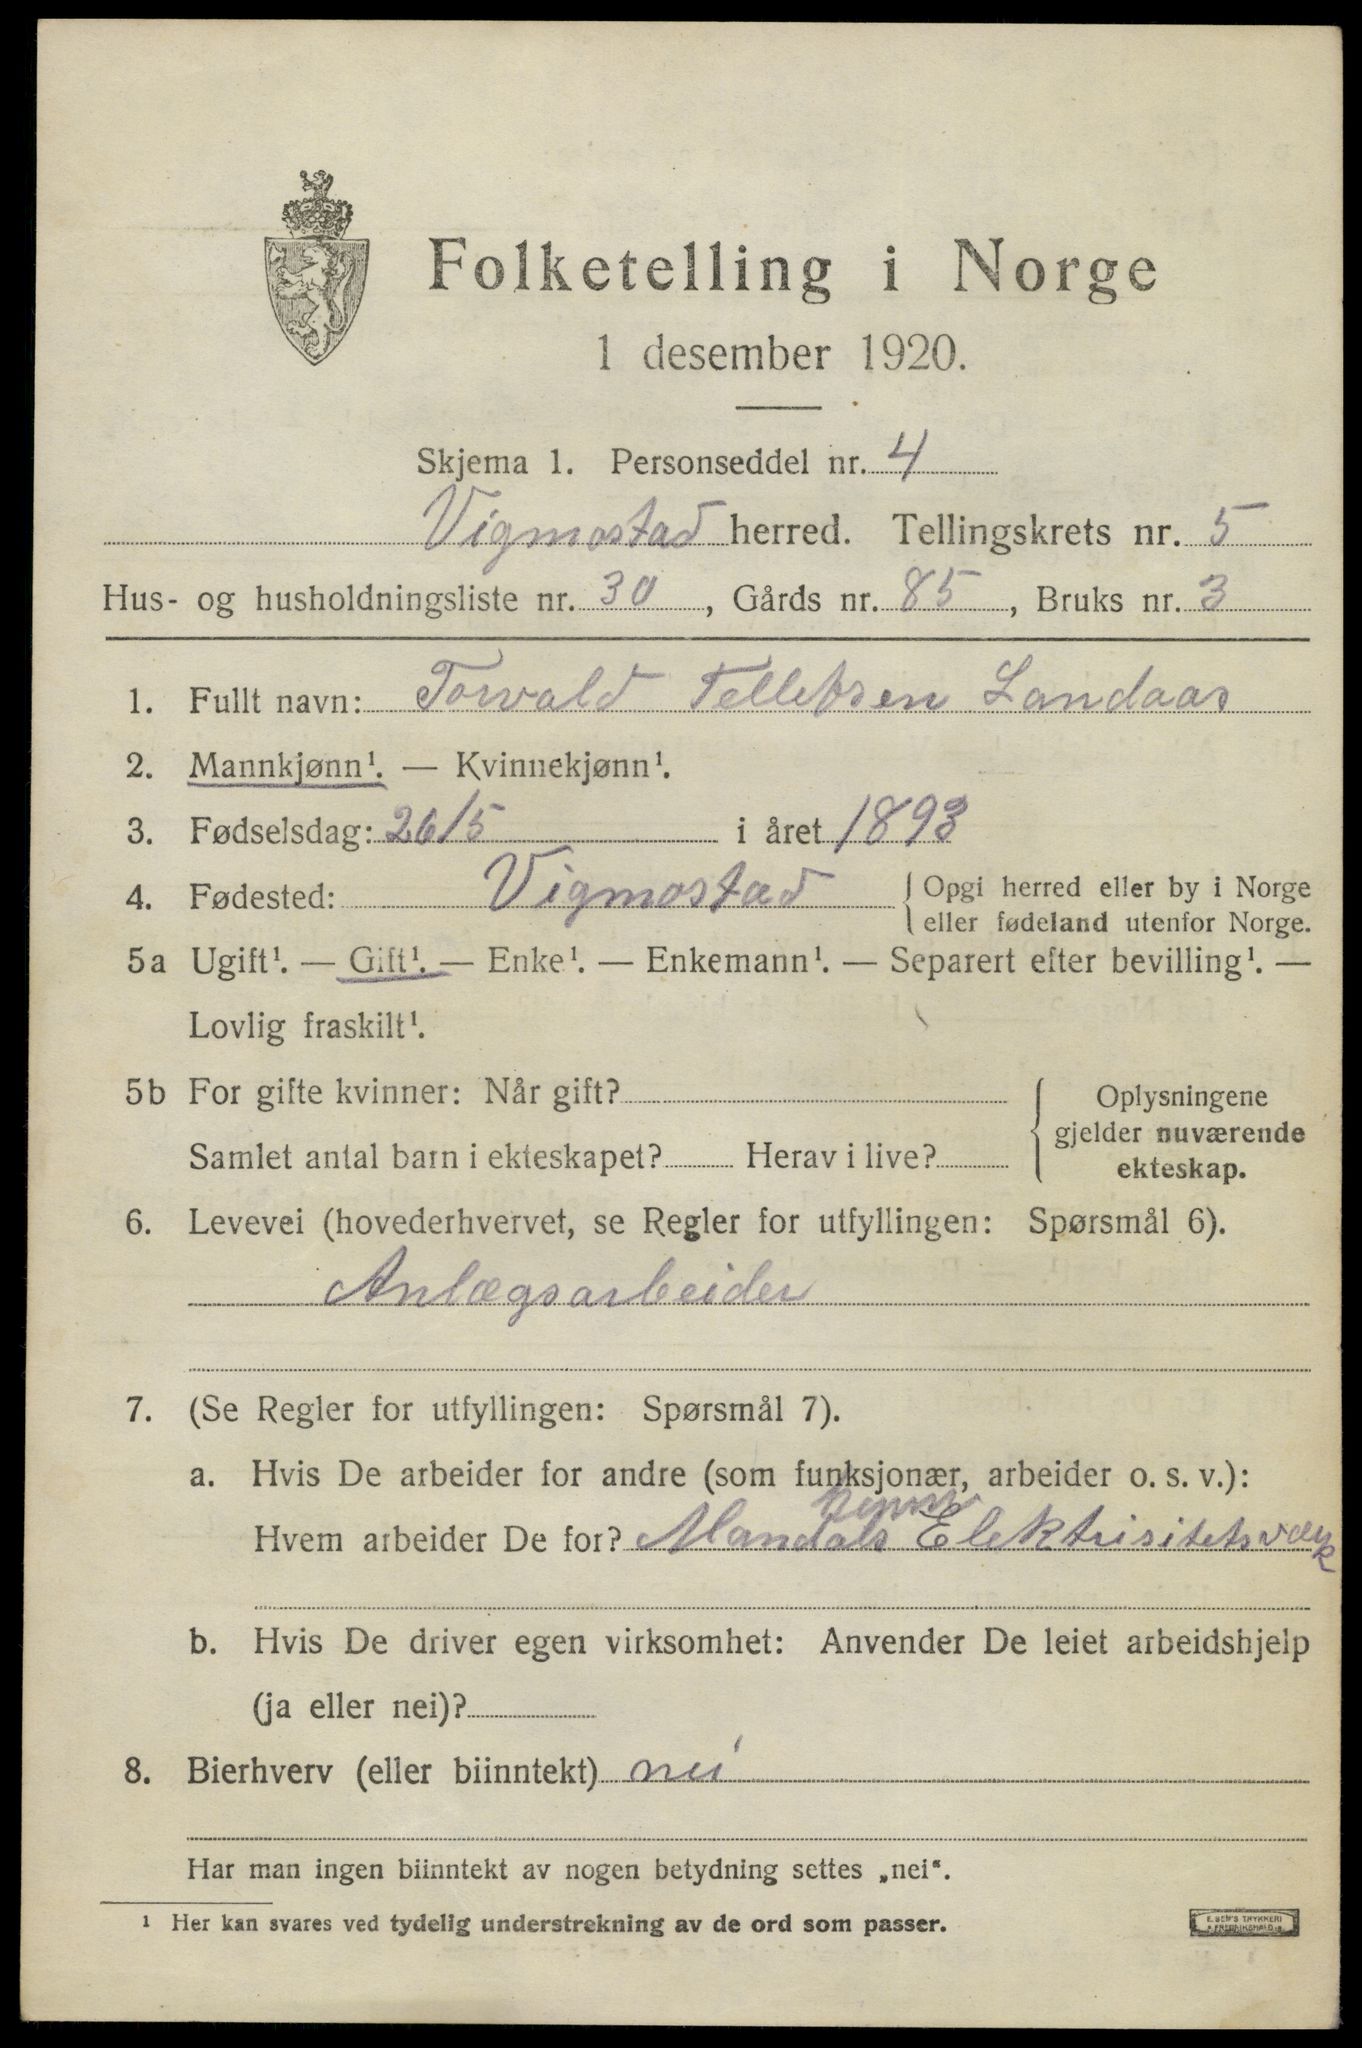 Folketelling i Norge
1 desember 1920.
Skjema 1. Personseddel nr. 4
Vigmostad herred. Tellingskrets nr. 5
Hus- og husholdningsliste nr. 30, Gårds nr. 85, Bruks nr. 3
1. Fullt navn: Torvald Tellefsen Landaas
2. Mannkjønn¹. — Kvinnekjønn¹.
3. Fødselsdag: 26/5 i året 1893
4. Fødested: Vigmostad { Opgi herred eller by i Norge
eller fødeland utenfor Norge.
5a Ugift¹. — Gift¹. — Enke¹. — Enkemann¹. — Separert efter bevilling¹. —
Lovlig fraskilt¹.
5b For gifte kvinner: Når gift?
Samlet antal barn i ekteskapet? Herav i live?
Oplysningene
gjelder nuværende
ekteskap.
6. Levevei (hovederhvervet, se Regler for utfyllingen: Spørsmål 6).
Anlægsarbeider
7. (Se Regler for utfyllingen: Spørsmål 7).
a. Hvis De arbeider for andre (som funksjonær, arbeider o. s. v.):
Hvem arbeider De for? Mandals Elektrisitetsverk
b. Hvis De driver egen virksomhet: Anvender De leiet arbeidshjelp
(ja eller nei)?
8. Bierhverv (eller biinntekt) nei
Har man ingen biinntekt av nogen betydning settes „nei“.
¹ Her kan svares ved tydelig understrekning av de ord som passer.